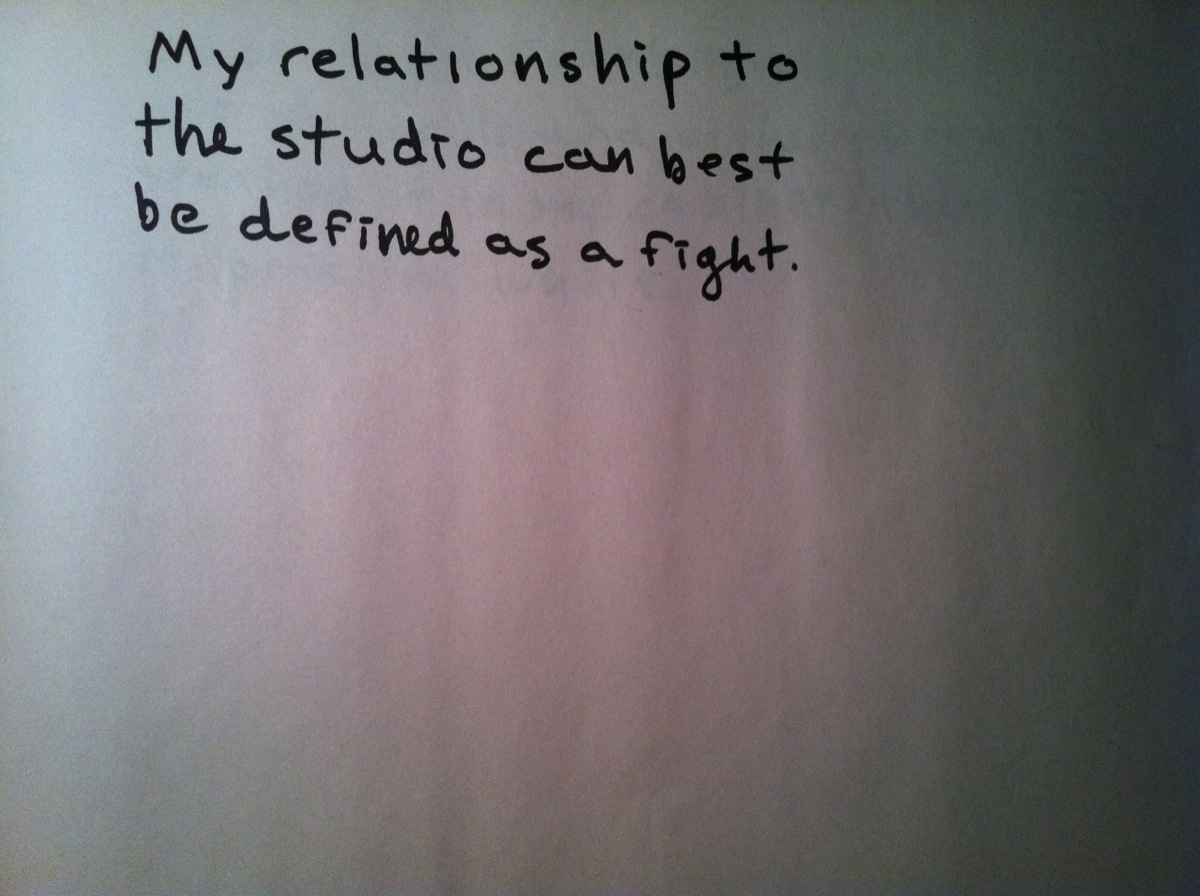 My relationship to
the studio can best
be defined as a fight.